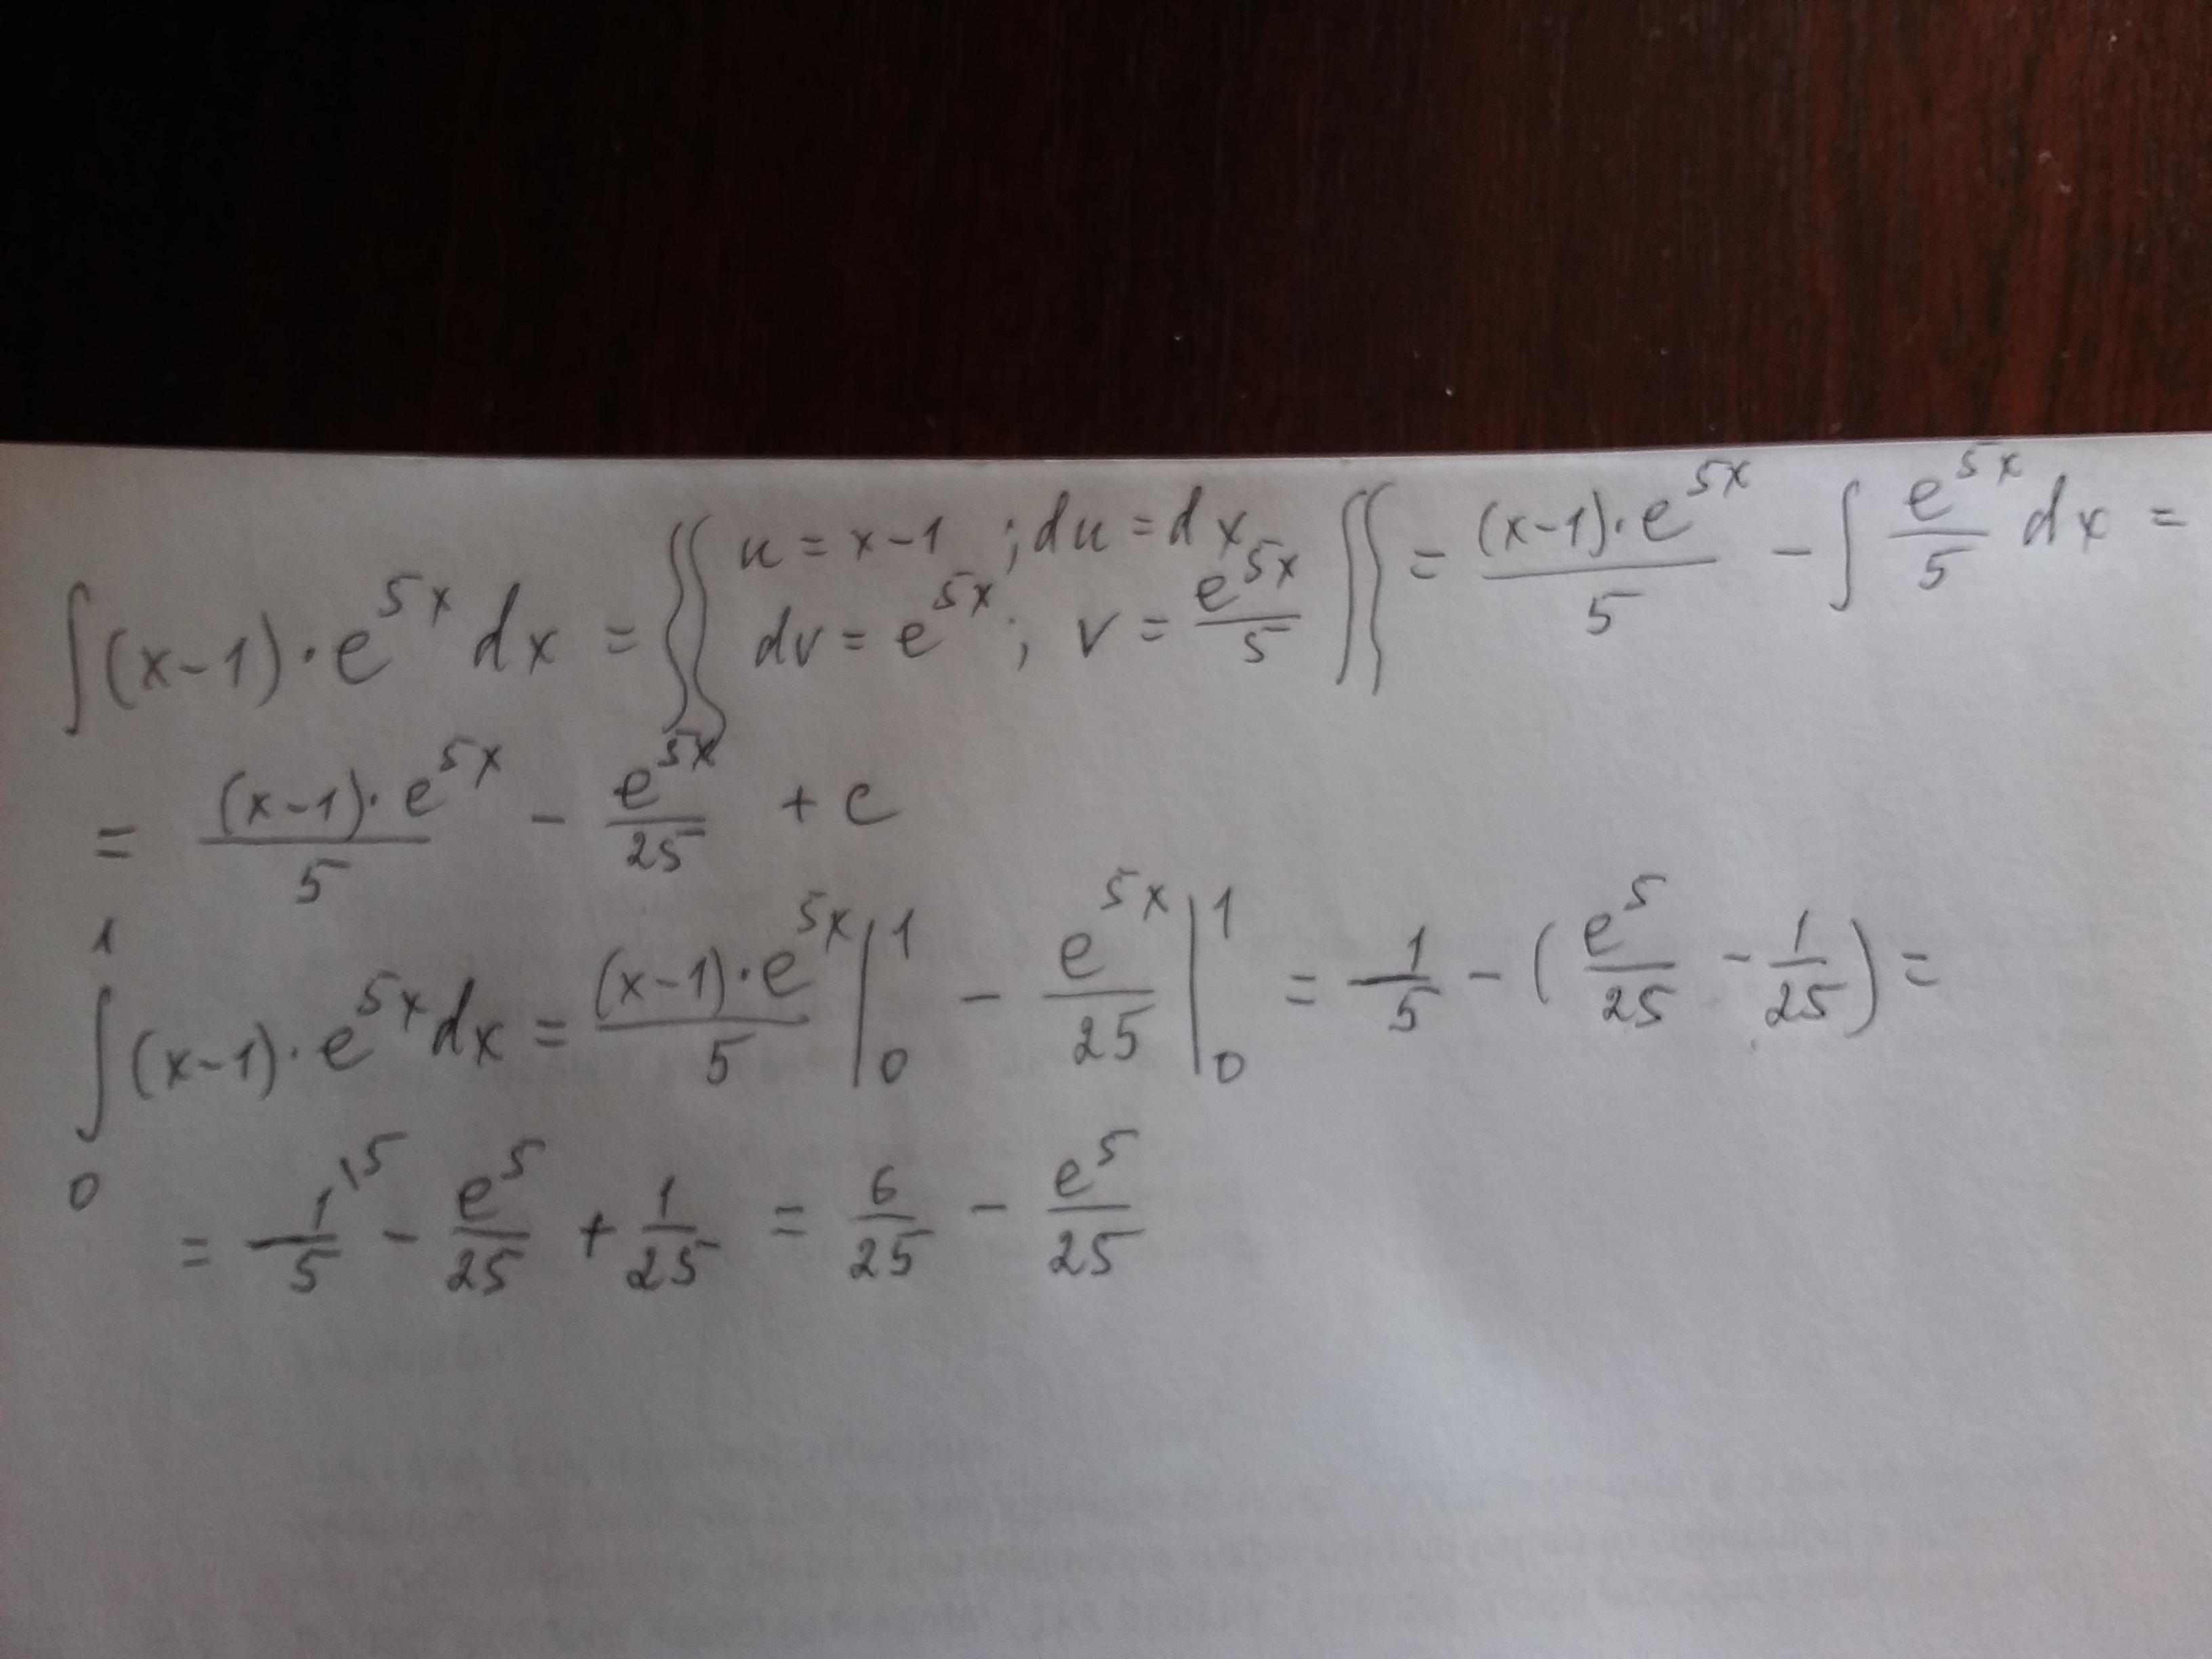 ∫(x-1)·e^{5x} dx = {{ u = x-1 ; du = dx dv = e^{5x} ; v = e^{5x}/5 }} = (x-1)·e^{5x}/5 - ∫ e^{5x}/5 dx =
= (x-1)·e^{5x}/5 - e^{5x}/25 + c
∫_0^1 (x-1)·e^{5x} dx = (x-1)·e^{5x}/5 |_0^1 - e^{5x}/25 |_0^1 = 1/5 - (e^5/25 - 1/25) =
= 1^{\5}/5 - e^5/25 + 1/25 = 6/25 - e^5/25